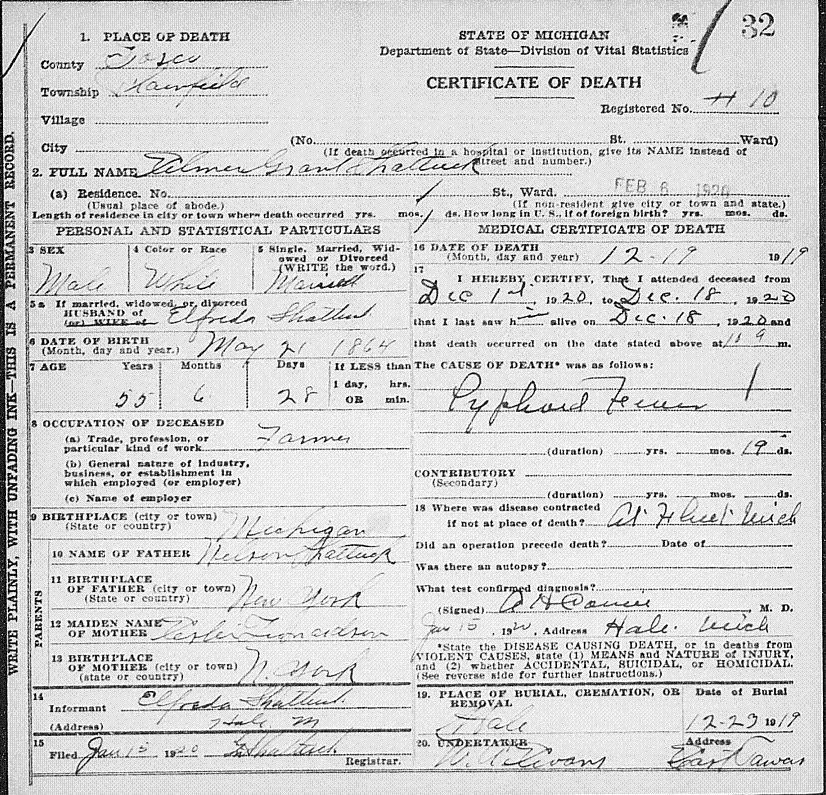 32
1. PLACE OF DEATH
County Iosco
Township Plainfield
Village
City
STATE OF MICHIGAN
Department of State—Division of Vital Statistics
CERTIFICATE OF DEATH
Registered No. # 10
(No. St. Ward)
(If death occurred in a hospital or institution, give its NAME instead of street and number.)
2. FULL NAME Grant Shattuck
(a) Residence. No. St., Ward. FEB 6 1920
(Usual place of abode.) (If non-resident give city or town and state.)
Length of residence in city or town where death occurred yrs. mos. ds. How long in U. S., if of foreign birth? yrs. mos. ds.
PERSONAL AND STATISTICAL PARTICULARS
3 SEX
Male
4 Color or Race
White
5 Single, Married, Widowed or Divorced (WRITE the word.)
Married
5a If married, widowed, or divorced
HUSBAND of
(or) WIFE of Elfreda Shattuck
6 DATE OF BIRTH
(Month, day and year.) May 21 1864
7 AGE Years Months Days If LESS than
1 day, hrs.
OR min.
55 6 28
8 OCCUPATION OF DECEASED
(a) Trade, profession, or
particular kind of work Farmer
(b) General nature of industry,
business, or establishment in
which employed (or employer)
(c) Name of employer
9 BIRTHPLACE (city or town)
(State or country) Michigan
PARENTS
10 NAME OF FATHER Nelson Shattuck
11 BIRTHPLACE
OF FATHER (city or town)
(State or country) New York
12 MAIDEN NAME
OF MOTHER
13 BIRTHPLACE
OF MOTHER (city or town)
(State or country) N. York
14
Informant Elfreda Shattuck
(Address) Hale, M
15
Filed Jan 15 1920 Registrar.
MEDICAL CERTIFICATE OF DEATH
16 DATE OF DEATH
(Month, day and year) 12-19 1919
17
I HEREBY CERTIFY, That I attended deceased from
Dec 1st, 1920, to Dec. 18, 1920
that I last saw h alive on Dec. 18, 1920 and
that death occurred on the date stated above at m.
The CAUSE OF DEATH* was as follows:
Typhoid Fever
(duration) yrs. mos. 19 ds.
CONTRIBUTORY
(Secondary)
(duration) yrs. mos. ds.
18 Where was disease contracted
if not at place of death? At Flint Mich
Did an operation precede death? Date of
Was there an autopsy?
What test confirmed diagnosis?
(Signed) M. D.
Jan 15, 1920, Address Hale. Mich
*State the DISEASE CAUSING DEATH, or in deaths from
VIOLENT CAUSES, state (1) MEANS and NATURE of INJURY,
and (2) whether ACCIDENTAL, SUICIDAL, or HOMICIDAL.
(See reverse side for further instructions.)
19. PLACE OF BURIAL, CREMATION, OR
REMOVAL
Hale
Date of Burial
12-23 1919
20. UNDERTAKER
Evans
Address
East Tawas
WRITE PLAINLY, WITH UNFADING INK—THIS IS A PERMANENT RECORD.